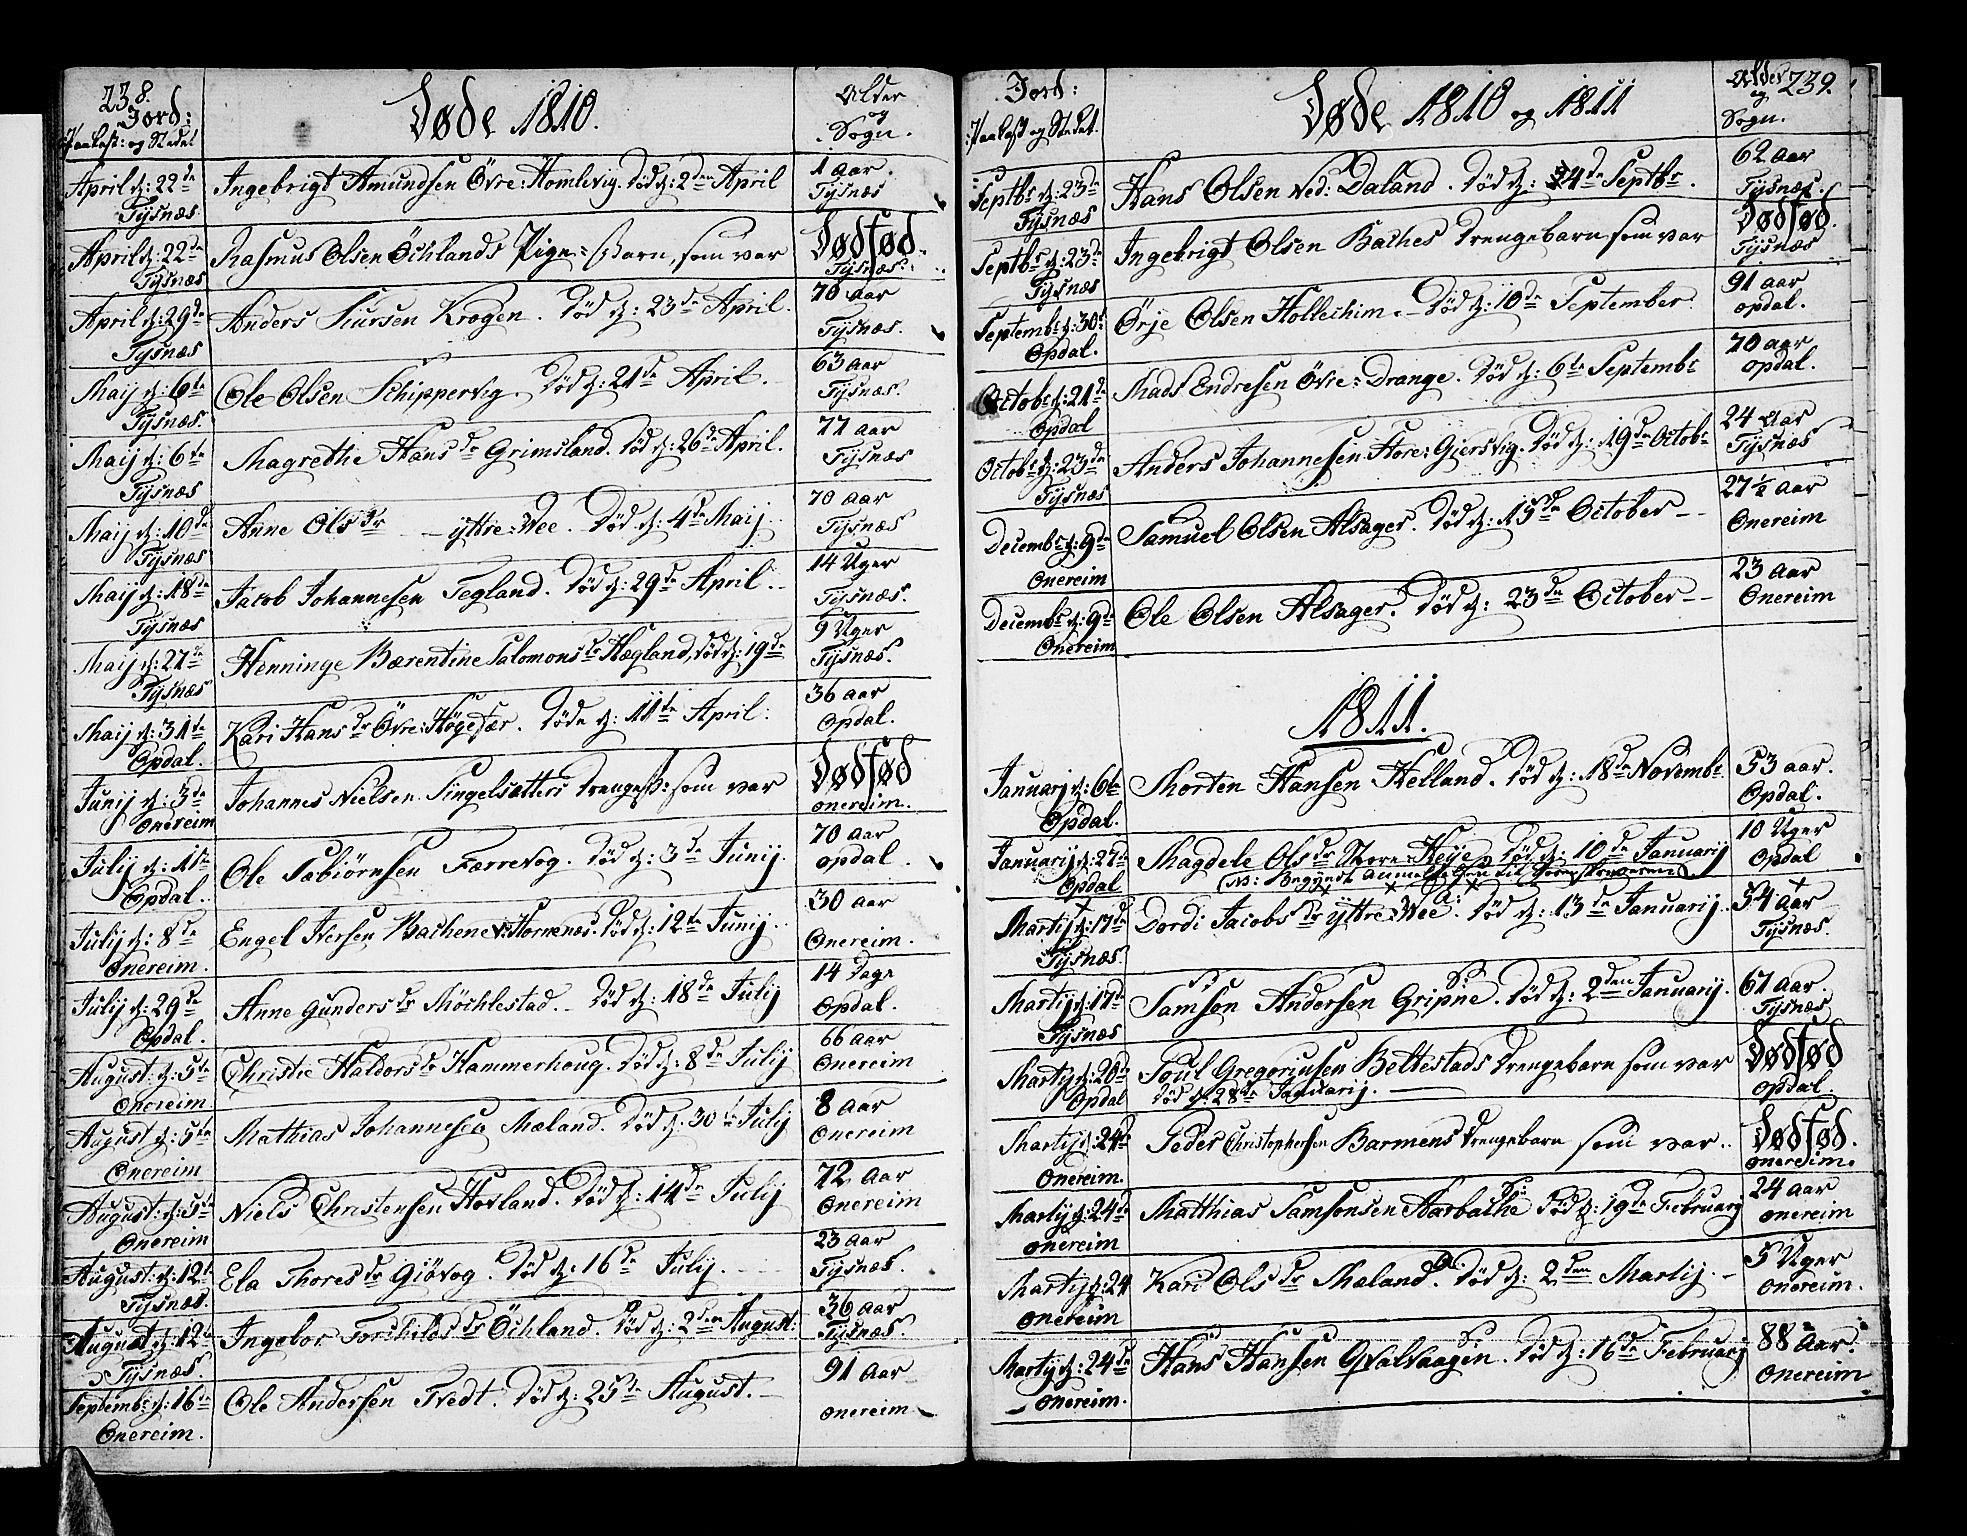 238.
Jord:
Paakast: og Stædet
Døde 1810.
Alder
og
Sogn.
April d: 22de
Tÿsnæs
Ingebrigt Amundsen Övre: Homlevig. Död d: 2den April
1 Aar
Tÿsnæs
April d: 22de
Tÿsnæs
Rasmus Olsen Öchlands Pige-Barn, som var
Dødfød.
Tÿsnæs.
April d: 29de
Tÿsnæs
Anders Siursen Krogen. Död d: 23de April.
70 aar
Tÿsnæs.
Maij d: 6te
Tÿsnæs.
Ole Olsen Schippervig. Död d: 21de April.
63 aar
Tÿsnæs.
Maij d: 6te
Tÿsnæs
Magrethe Hansdr Grimsland. Död d: 26de April.
77 aar
Tÿsnæs
Maij d: 10de
Tÿsnæs
Anne Olsdr - - ÿttre: Wee. Död d: 4de Maij
70 aar
Tÿsnæs
Maij d: 18de
Tÿsnæs
Jacob Johannesen Tegland. Död d: 29de April
14 Uger
Tÿsnæs.
Maij d: 27de
Tÿsnæs
Henninge Bærentine Salomonsdr Hægland, död d: 19de
9 Uger
Tÿsnæs.
Maij d: 31te
Opdal.
Kari Hansdr Övre: Högesær. Döde d: 11te April:
36 aar
Opdal.
Junij d: 3de
Onereim
Johannes Nielsen Singelsætters Drengeb: som var
Dødfød
onereim.
Julij d: 1ste
Opdal.
Ole Sæbiörnsen Færrevog. Död d: 3de Junij.
70 aar
opdal.
Julij d: 8de
Onereim.
Engel Iversen Bachene v: Hornenæs. Död d: 12te Junij.
30 aar
Onereim.
Julij d: 29de
Opdal.
Anne Gundersdr Möchlestad. Död d: 18de Julij
14 Dage
Opdal.
August: d: 5te
Onereim
Christie Haldorsdr Hammerhoug. Död d: 8de Julij
66 aar
Onereim
August d: 5te
Onereim
Mathias Johannesen Mæland. Död d: 30te Julij
8 Aar
Onereim
August: d: 5te
Onereim
Niels Christensen Hovland. Död d: 14de Julij
72 Aar
Onereim
August: d: 12te
Tÿsnæs.
Ela Thoresdr Giövog. Död d: 16de Julij.
23 aar
Tÿsnæs.
August d: 12te
Tÿsnæs.
Ingebor Torchildsdr Öchland. Död d: 2den August:
36 aar
Tÿsnæs.
Septembr: d: 16de
Onereim.
Ole Andersen Tvedt. Död d: 25de August.
91 Aar
onereim
Jord:
Paakast og Stædet.
Døde 1810 og 1811
Alder
og
Sogn.
239.
Septbr d: 23de
Tÿsnæs
Hans Olsen ned: Daland. Död d: 4de Septbr.
62 aar
Tÿsnæs.
Septbr d: 23de
Tÿsnæs
Ingebrigt Olsen Baches Drengebarn, som var
Dødfød.
Tÿsnæs
Septembr d: 30te
Opdal.
Örje Olsen Holleihim. Död d: 10de September.
91 aar
opdal.
Octobr d: 21de
Opdal
Mads Endresen Övre: Drange. Död d: 6te Septembr
70 aar
opdal.
Octobr d: 23de
Tÿsnæs
Anders Johannesen Store: Giersvig. Död d: 19de Octobr
24 Aar
Tÿsnæs
Decembr d: 9de
Onereim
Samuel Olsen Alsager. Död d: 15de October
27½ Aar
Onereim
Decembr d: 9de
Onereim
Ole Olsen Alsager. Död d: 23de October
23 Aar
Onereim
1811.
Januarij d: 6te
Opdal.
Morten Hansen Helland. Död d: 18de Novembr
53 aar.
Opdal.
Januarij d: 27de
Opdal
Magdele Olsdr Store: Heÿe. Död d: 10de Januarij
10 Uger
Opdal
NB: Begyndt Anmeldelsen til Sorenskriveren
Martij d: 17de
Tÿsnæs.
Dordi Jacobsdr ÿttre: Wee. Död d: 13de Januarij.
54 aar
Tÿsnæs.
Martij d: 17de
Tÿsnæs
Samson Andersen Gripne. Död d: 2den Januarij.
61 aar.
Tÿsnæs
Martij d: 20de
Opdal
Poul Gregoriusen Beltestads Drengebarn som var
Död d: 28de Januarij.
Dødfød
Opdal.
Martij d: 24de
Onereim.
Peder Christophersen Barmens Drengebarn som var..
Dødfød.
onereim.
Martij d: 24de
onereim
Matthias Samsonsen Aarbache Död d: 19de Februarij
24 aar
onereim
Martij d: 24
onereim
Kari Olsdr Mæland. Död d: 2den Martij.
5 Uger
onereim.
Martij d: 24de
onereim.
Hans Hansen Qvalvaagen. Död d: 16de Februarij
88 Aar.
Onereim